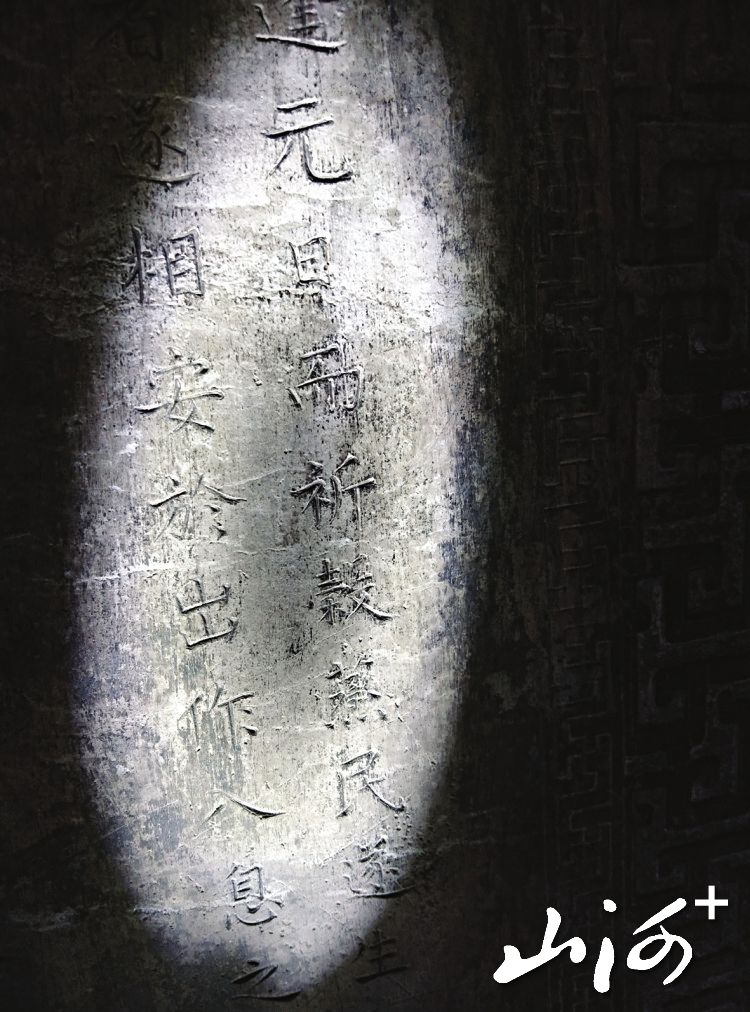 逢元旦而祈穀蒸民遂生
遂相安於出作入息之
山河+